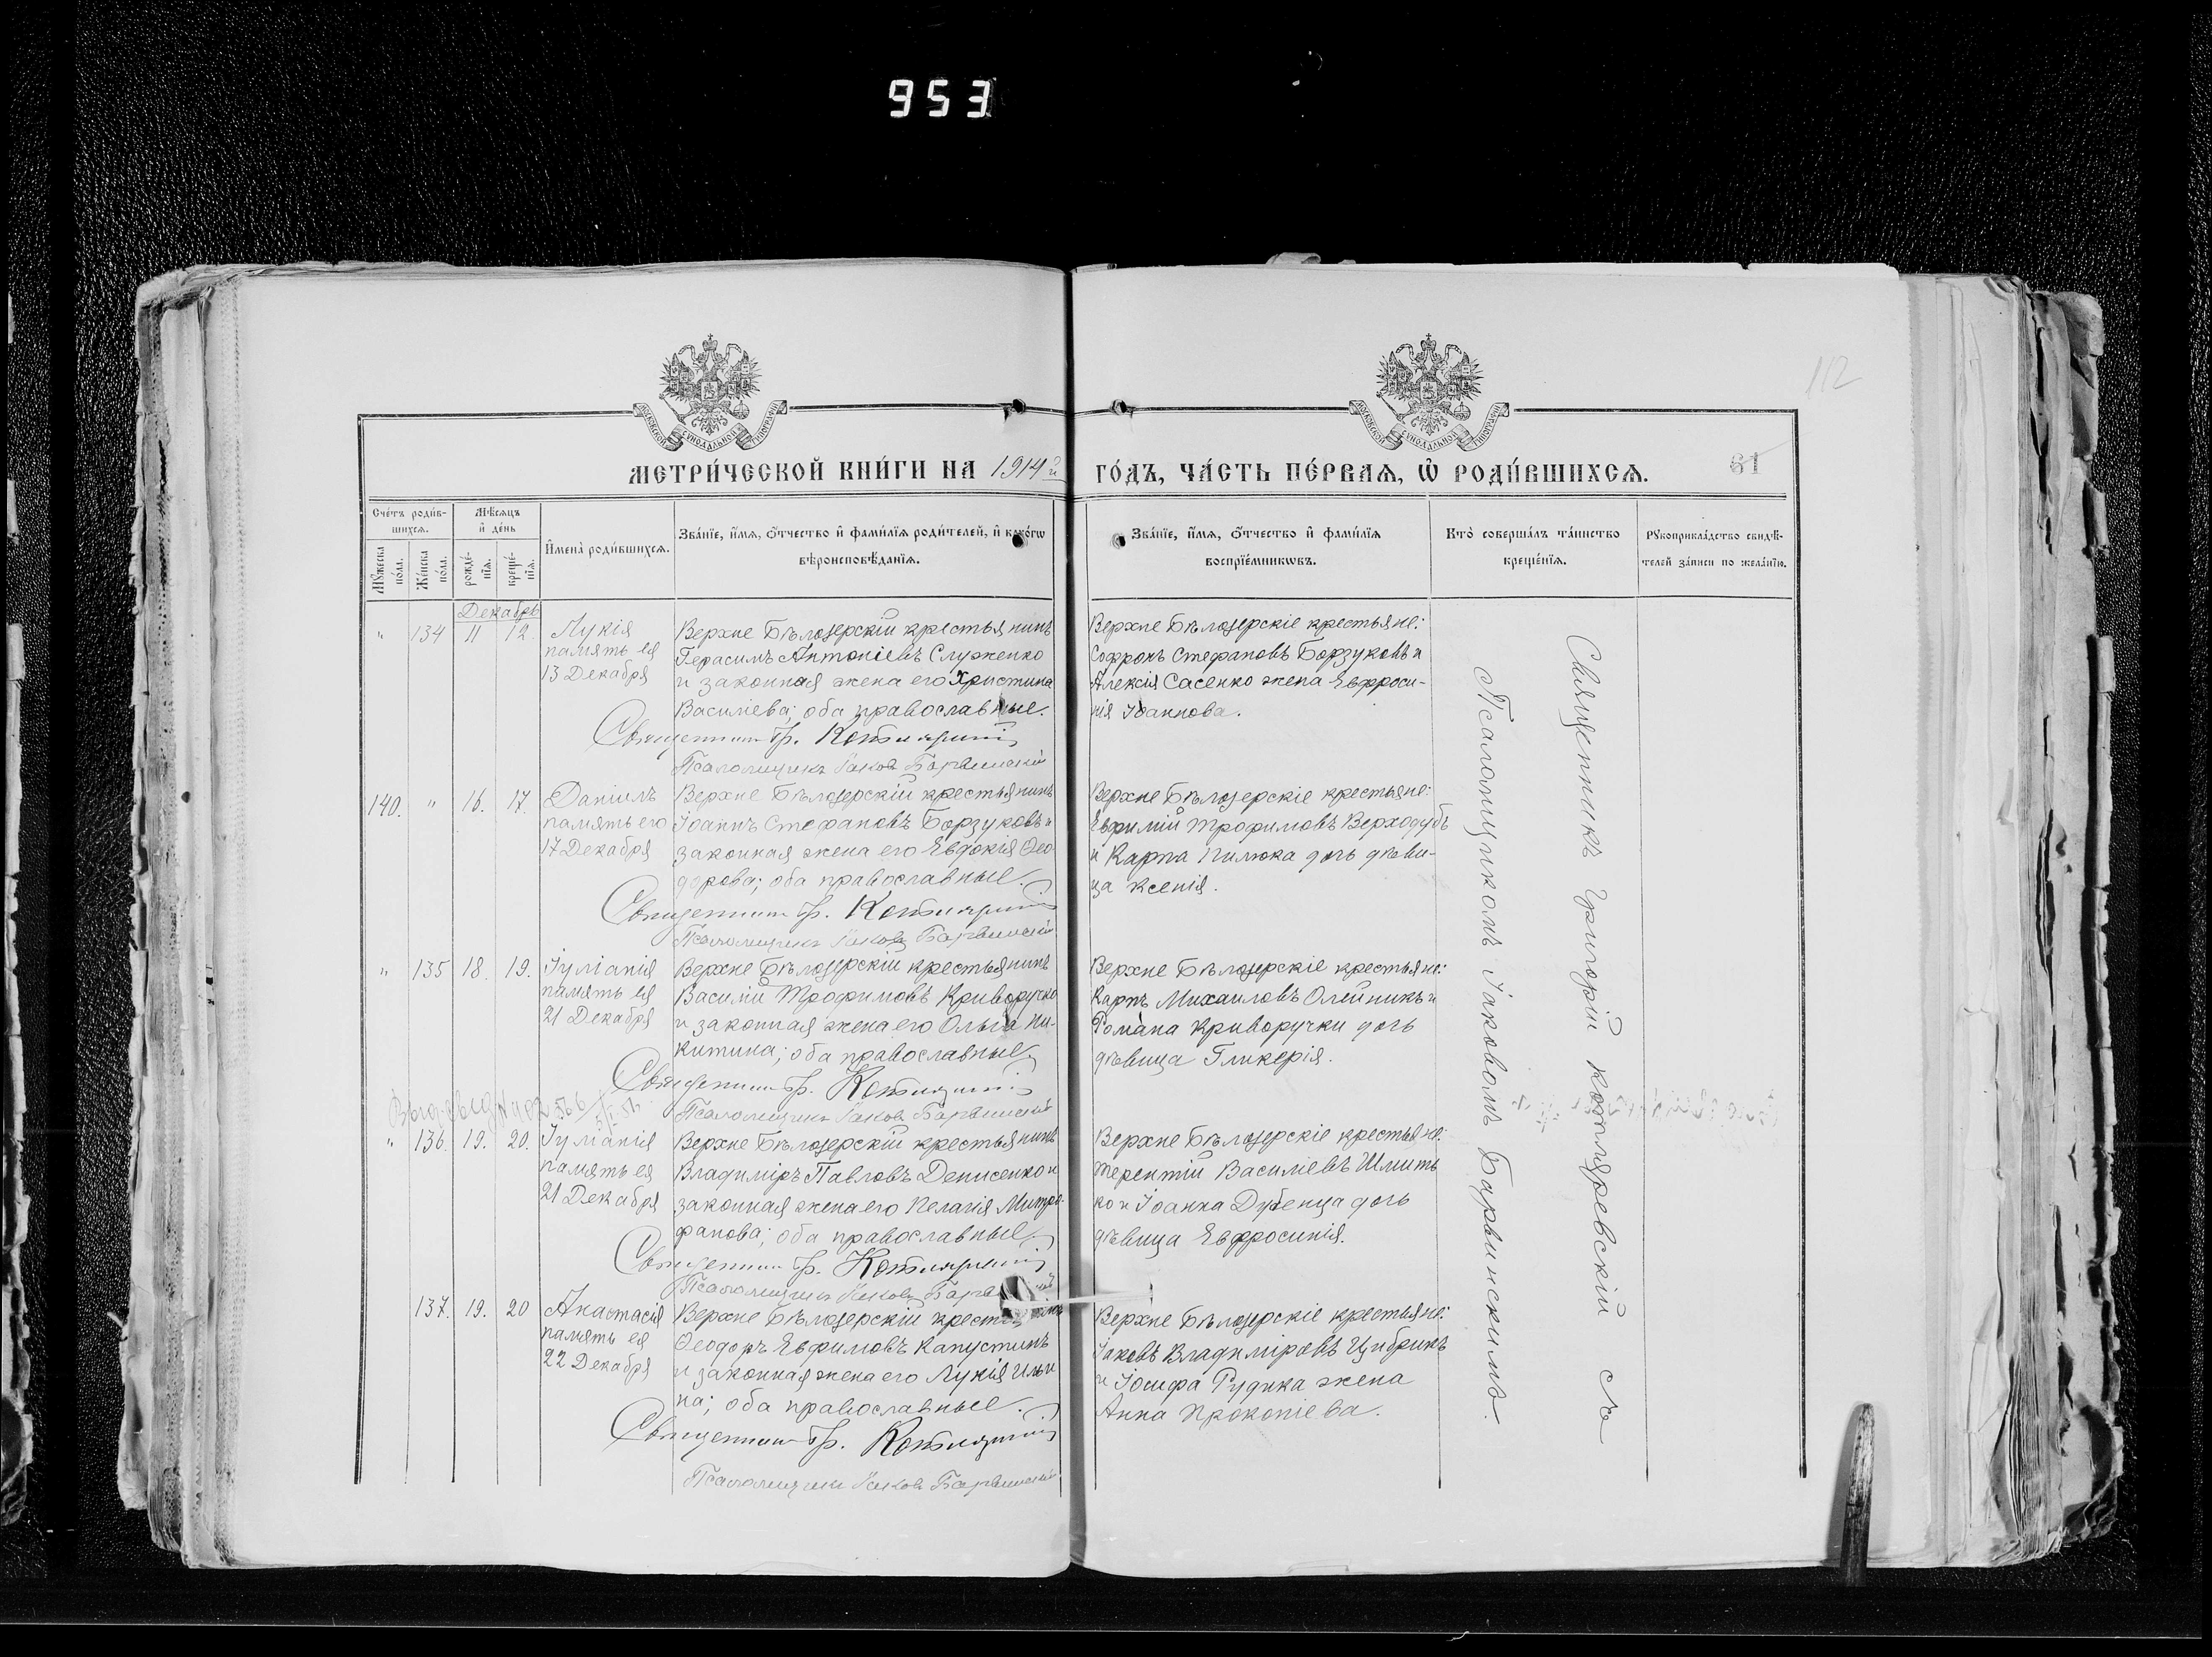 953
112
МОСКОВСКОЙ СУНОДАЛЬНОЙ ТИПОГРАФІИ
МОСКОВСКОЙ СУНОДАЛЬНОЙ ТИПОГРАФІИ
МЕТРИ́ЧЕСКОЙ КНИ́ГИ НА 1914й ГО́ДЪ, ЧА́СТЬ ПЕ́РВАѦ, Ѡ҆ РОДИ́ВШИХСѦ.
61
Сче́тъ роди́в-
шихсѧ.
Мꙋ́жеска по́ла.
Же́нска по́ла.
Мѣ́сѧцъ
и҆ де́нь
рожде́-
нїѧ.
креще́-
нїѧ.
И҆мена̀ роди́вшихсѧ.
Зва́нїе, и҆́мѧ, ѻ҆́тчество и҆ фами́лїѧ роди́телей, и҆ како́гѡ
вѣроисповѣ́данїѧ.
Зва́нїе, и҆́мѧ, ѻ҆́тчество и҆ фами́лїѧ
воспрїе́мникѡвъ.
Кто̀ соверша́лъ та́инство
креще́нїѧ.
Рꙋкоприкла́дство свидѣ́-
телей за́писи по жела́нїю.
Декабрь
" 134 11 12.
Лукія
память ея
13 Декабря
Верхне Бѣлозерскій крестьянинъ
Герасимъ Антоніевъ Служенко
и законная жена его Христина
Василіева; оба православные.
Священникъ Гр. Котляревскій
Псаломщикъ Іаковъ Барвинскій
Верхне Бѣлозерскіе крестьяне:
Софронъ Стефановъ Борзуковъ и
Алексія Сасенко жена Евфроси-
нія Іоаннова.
140. " 16. 17.
Даніилъ
память его
17 Декабря
Верхне Бѣлозерскій крестьянинъ
Іоаннъ Стефановъ Борзуковъ и
законная жена его Евдокія Ѳео-
дорова; оба православные.
Священникъ Гр. Котляревскій
Псаломщикъ Іаковъ Барвинскій
Верхне Бѣлозерскіе крестьяне:
Евфимій Трофимовъ Верходубъ
и Карпа Пилюка дочь дѣви-
ца Ксенія.
" 135 18. 19.
Іуліанія
память ея
21 Декабря
Верхне Бѣлозерскій крестьянинъ
Василій Трофимовъ Криворучко
и законная жена его Ольга Ни-
китина; оба православные.
Священникъ Гр. Котляревскій
Псаломщикъ Іаковъ Барвинскій
Верхне Бѣлозерскіе крестьяне:
Карпъ Михаиловъ Олейникъ и
Романа Криворучки дочь
дѣвица Гликерія.
" 136. 19. 20.
Іуліанія
память ея
21 Декабря
Верхне Бѣлозерскій крестьянинъ
Владиміръ Павловъ Денисенко и
законная жена его Пелагія Митро-
фанова; оба православные.
Священникъ Гр. Котляревскій
Псаломщикъ Іаковъ
Верхне Бѣлозерскіе крестьяне:
Терентій Василіевъ Шмить
ко и Іоанна Дубенца дочь
дѣвица Евфросинія.
137. 19. 20
Анастасія
память ея
22 Декабря
Верхне Бѣлозерскій
Ѳеодоръ Евфимовъ Капустинъ
и законная жена его Лукія Ильи
на; оба православные.
Священникъ Гр. Котляревскій
Псаломщикъ Іаковъ Барвинскій
Верхне Бѣлозерскіе крестьяне:
Іаковъ Владиміровъ Цибрикъ
и Іосифа Рудика жена
Анна Прокопіева.
Священникъ Григорій Котляревскій съ
Псаломщикомъ Іаковомъ Барвинскимъ.